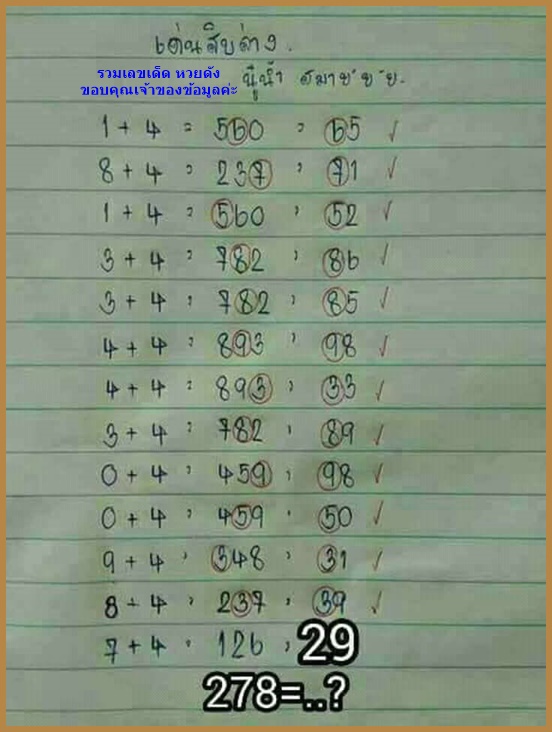 เด่นสิบล่าง.
รวมเลขเด็ด หวยดัง
ขอบคุณเจ้าของข้อมูลค่ะ
1 + 4 = 560 = 65 ✓
8 + 4 = 237 = 71 ✓
1 + 4 = 560 = 52 ✓
3 + 4 = 782 = 86 ✓
3 + 4 = 782 = 85 ✓
4 + 4 = 893 = 98 ✓
4 + 4 = 893 = 33 ✓
3 + 4 = 782 = 89 ✓
0 + 4 = 459 = 98 ✓
0 + 4 = 459 = 50 ✓
9 + 4 = 348 = 31 ✓
8 + 4 = 237 = 39 ✓
7 + 4 = 126 = 29
278=..?